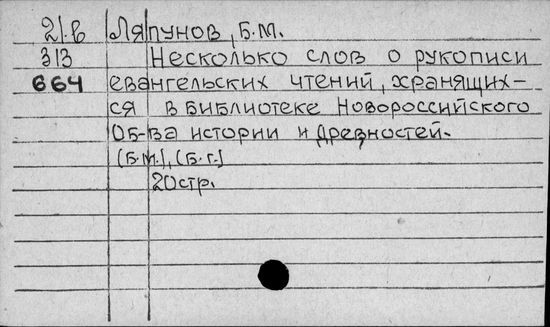 21.в Ляпунов, Б.М.
313 Несколько слов о рукописи
664 евангельских чтений, хранящих-
ся в библиотеке Новороссийского
Об-ва истории и древностей.
(Б.м.), (Б.г.)
20стр.